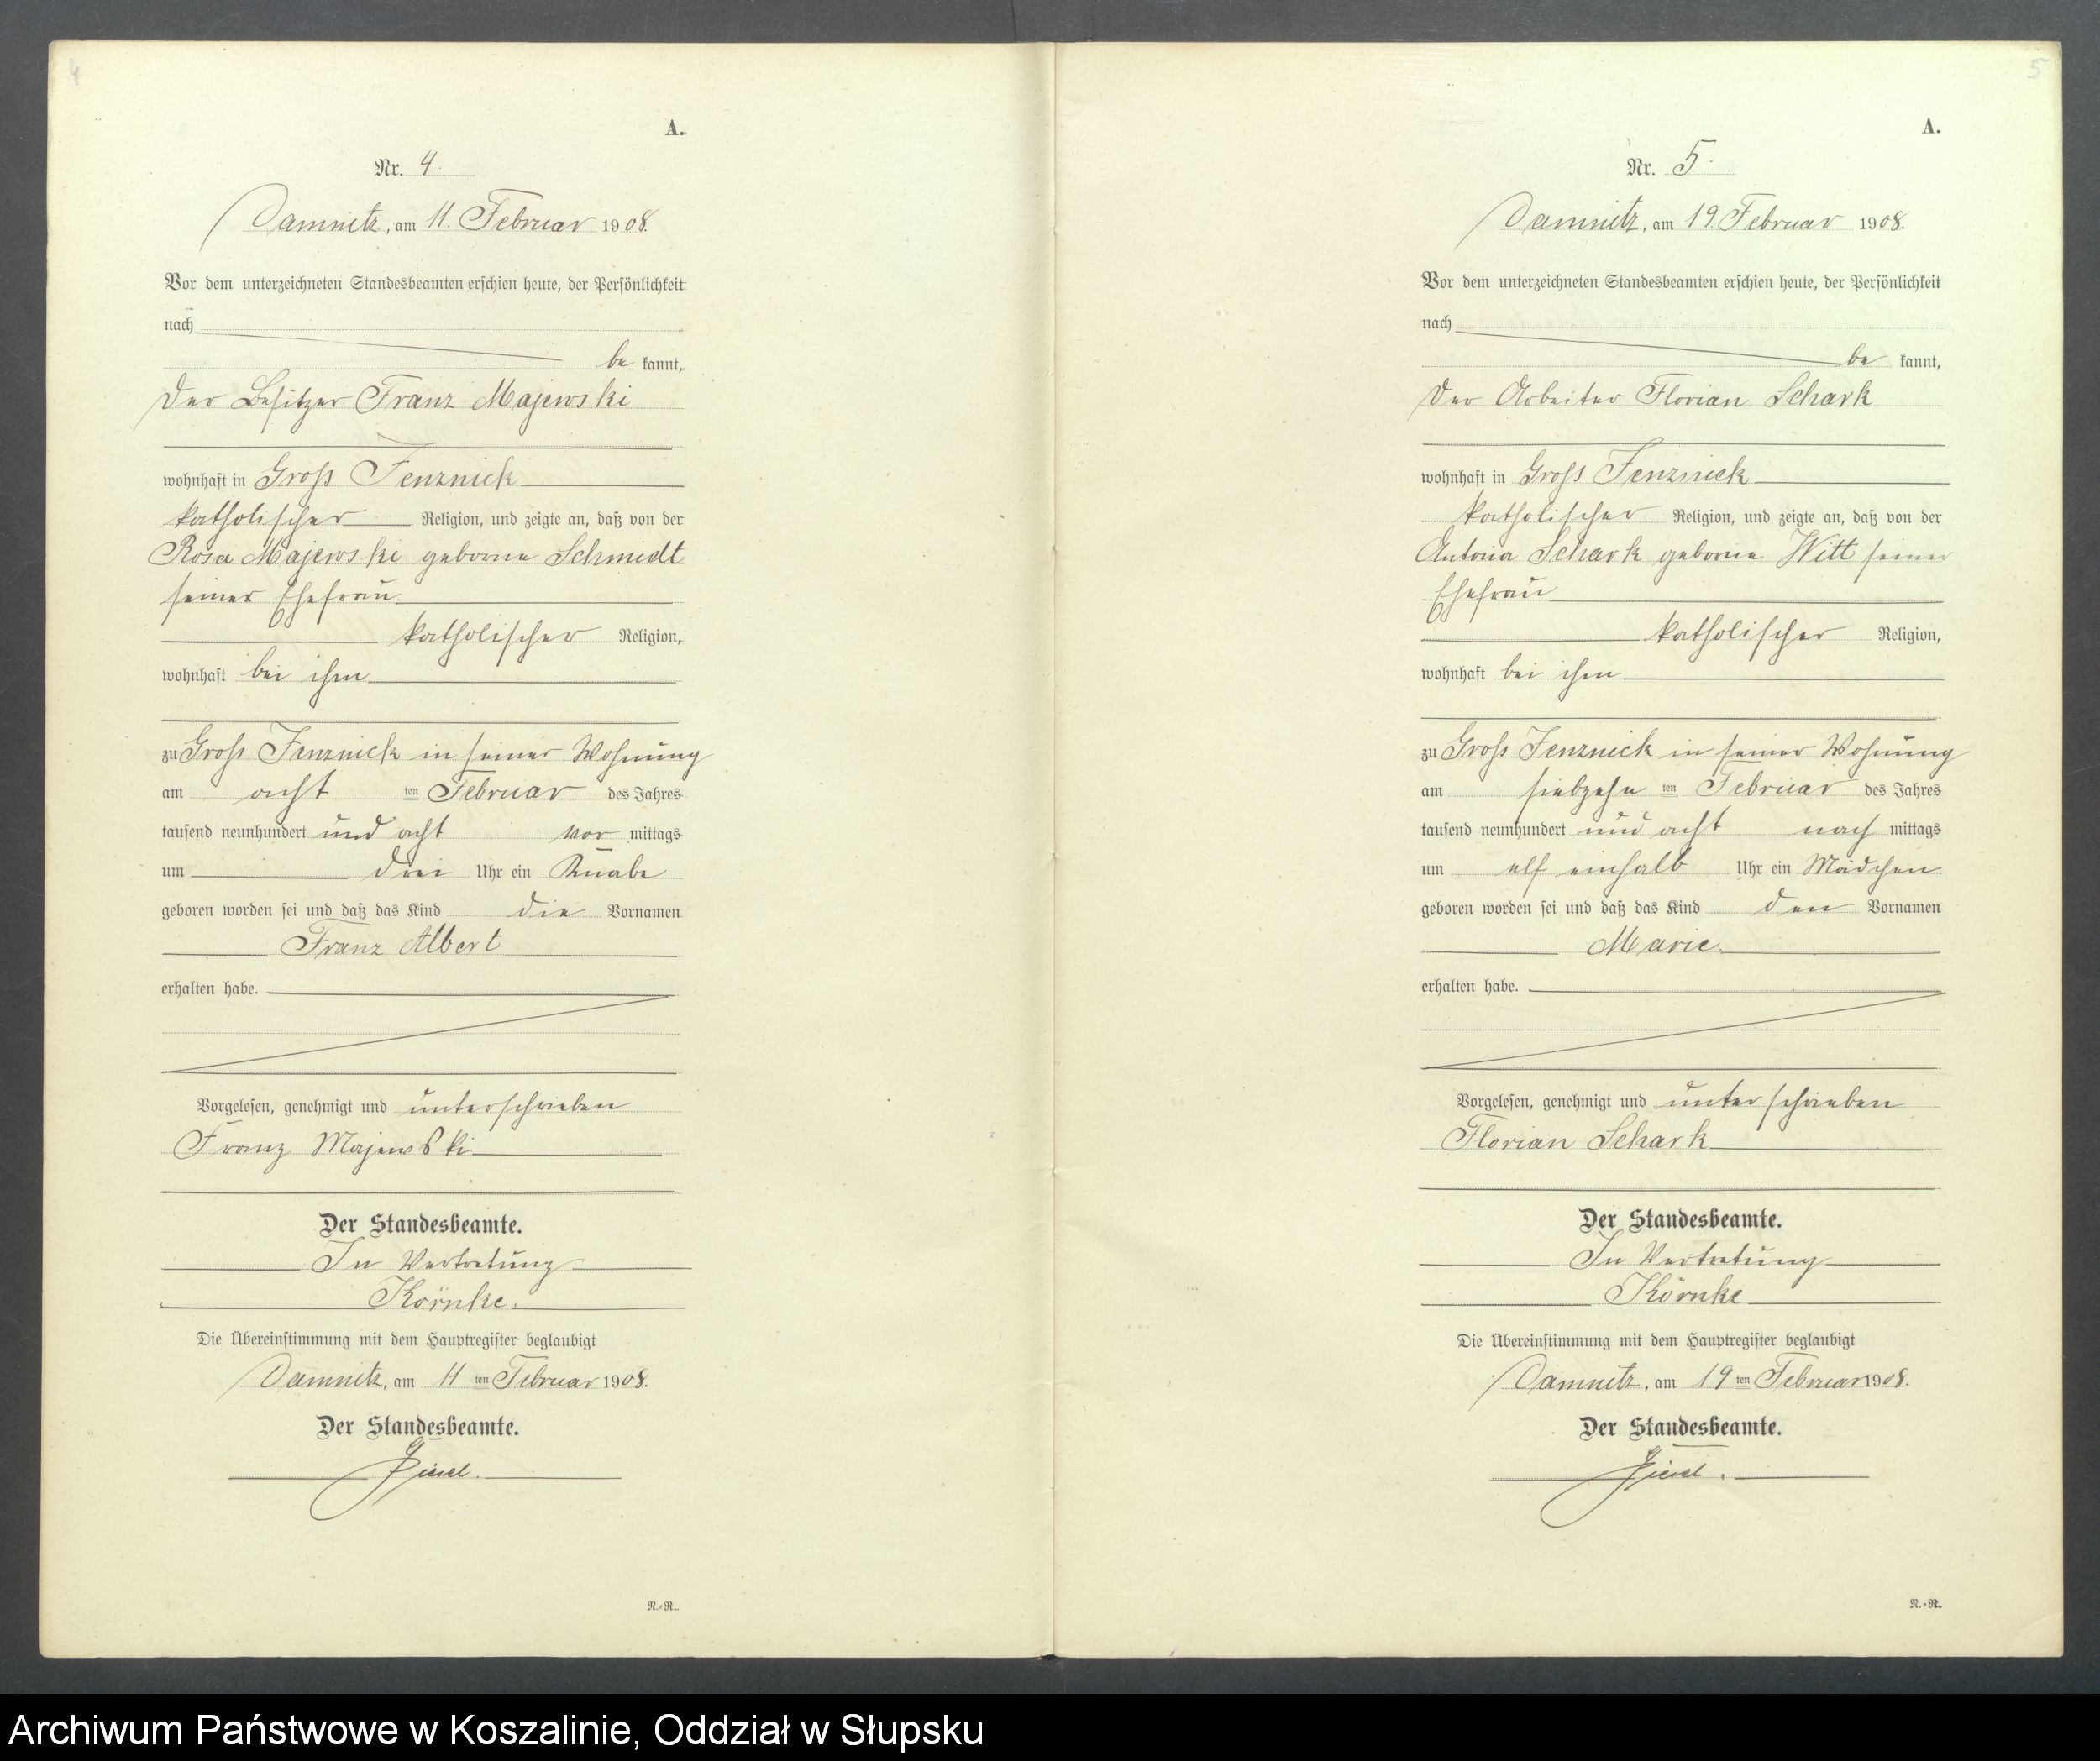 4
A.
Nr. 4.
Damnitz, am 11. Februar 1908.
Vor dem unterzeichneten Standesbeamten erschien heute, der Persönlichkeit
nach
be kannt,
der Besitzer Franz Majewski
wohnhaft in Gross Jenznick
katholischer Religion, und zeigte an, daß von der
Rosa Majewski geborne Schmidt
seiner Ehefrau
katholischer Religion,
wohnhaft bei ihm
zu Gross Jenznick in seiner Wohnung
am acht ten Februar des Jahres
tausend neunhundert und acht vor mittags
um drei Uhr ein Knabe
geboren worden sei und daß das Kind die Vornamen
Franz Albert
erhalten habe.
Vorgelesen, genehmigt und unterschrieben
Franz Majewski
Der Standesbeamte.
In Vertretung
Körnke.
Die Übereinstimmung mit dem Hauptregister beglaubigt
Damnitz, am 11 ten Februar 1908.
Der Standesbeamte.
R.-R.
5
A.
Nr. 5.
Damnitz, am 19. Februar 1908.
Vor dem unterzeichneten Standesbeamten erschien heute, der Persönlichkeit
nach
be kannt,
der Arbeiter Florian Schark
wohnhaft in Gross Jenznick
katholischer Religion, und zeigte an, daß von der
Antonia Schark geborne Witt seiner
Ehefrau
katholischer Religion,
wohnhaft bei ihm
zu Gross Jenznick in seiner Wohnung
am siebzehn ten Februar des Jahres
tausend neunhundert und acht nach mittags
um elf einhalb Uhr ein Mädchen
geboren worden sei und daß das Kind den Vornamen
Marie.
erhalten habe.
Vorgelesen, genehmigt und unterschrieben
Florian Schark
Der Standesbeamte.
In Vertretung
Körnke
Die Übereinstimmung mit dem Hauptregister beglaubigt
Damnitz, am 19 ten Februar 1908.
Der Standesbeamte.
R.-R.
Archiwum Państwowe w Koszalinie, Oddział w Słupsku